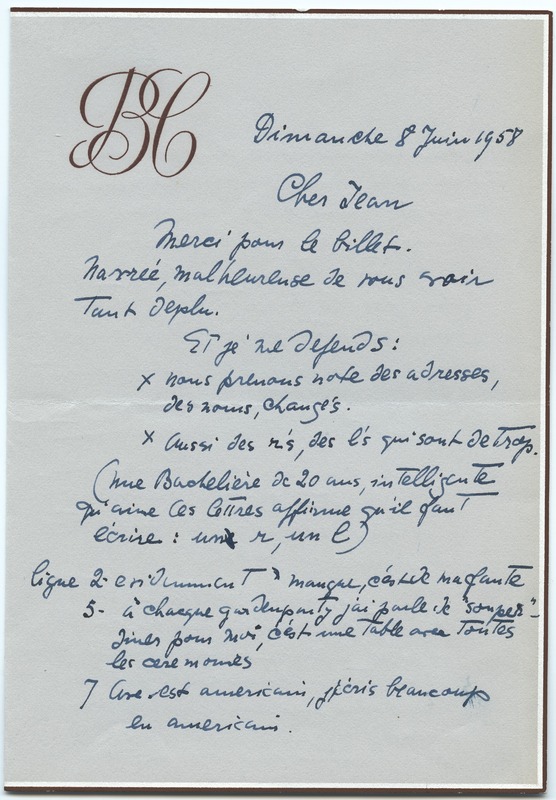 BC
Dimanche 8 Juin 1958
Cher Jean
Merci pour le billet.
Navrée, malheureuse de vous avoir
tant déplu.
Et je me défends :
x nous prenons note des adresses,
des noms, changés.
x aussi des r's, des l's qui sont de trop.
(une Bachelière de 20 ans, intelligente
qui aime les lettres affirme qu'il faut
écrire : un r, un l)
ligne 2 - evidemment manque, c'est de ma faute
5 - à chaque gardenparty j'ai parlé de "souper" -
diner pour moi, c'est une table avec toutes
les ceremonies
7 est americain, j'écris beaucoup
en americain.